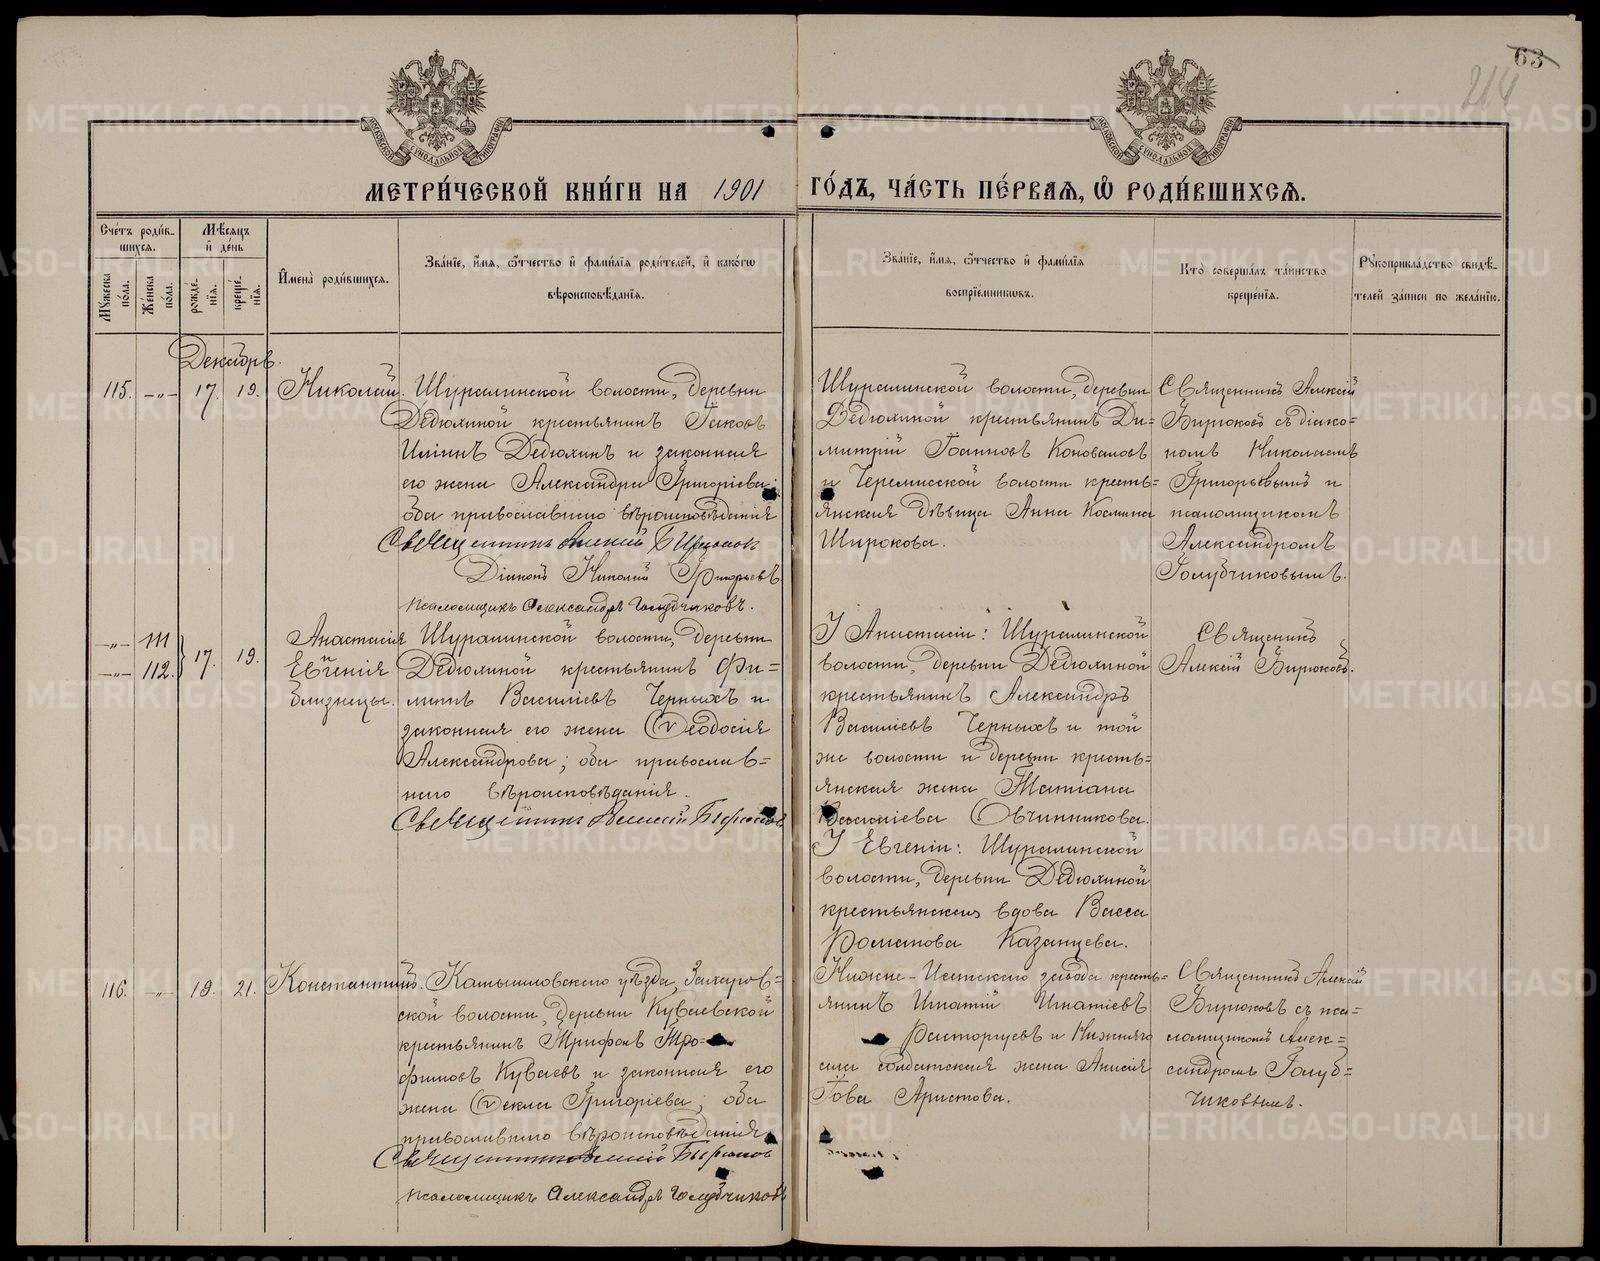 63
214
МЕТРИ́ЧЕСКОЙ КНИ́ГИ НА 1901 ГО́ДЪ, ЧА́СТЬ ПЕ́РВАЯ, Ѡ РОДИ́ВШИХСЯ.
Сче́тъ роди́в-
шихся.
Мꙋ́жеска по́ла.
Же́нска по́ла.
Мѣ́сяцъ
и де́нь
рожде́-
нїя.
креще́-
нїя.
Имена̀ роди́вшихся.
Зва́нїе, и́мя, ѻ҆́тчество и фами́лїя роди́телей, и како́гѡ
вѣроисповѣ́данїя.
Зва́нїе, и́мя, ѻ҆́тчество и фами́лїя
воспрїе́мниковъ.
Кто̀ соверша́лъ та́инство
креще́нїя.
Рꙋкоприкла́дство свидѣ́-
телей за́писи по жела́нїю.
Декабрь.
115. -„- 17. 19. Николай.
Шуралинской волости, деревни
Дедюхиной крестьянинъ Іаковъ
Илiинъ Дедюхинъ и законная
его жена Александра Григоріева;
оба православнаго вѣроисповѣданія
Священникъ Алексій Бирюковъ
Діаконъ Николай Григорьевъ
псаломщикъ Александръ Голубчиковъ.
Шуралинской волости, деревни
Дедюхиной крестьянинъ Ди-
митрій Іоанновъ Коноваловъ
и Черемисской волости кресть-
янская дѣвица Анна Косьмина
Широкова.
Священникъ Алексій
Бирюковъ съ діако-
номъ Николаемъ
Григорьевымъ и
псаломщикомъ
Александромъ
Голубчиковымъ.
-„- 111
-„- 112. 17. 19.
Анастасія
Евгенія
близнецы.
Шуралинской волости, деревни
Дедюхиной крестьянинъ Фи-
липпъ Василіевъ Черныхъ и
законная его жена Ѳеодосія
Александрова; оба православ-
наго вѣроисповѣданія.
Священникъ Алексій Бирюковъ
У Анастасіи: Шуралинской
волости, деревни Дедюхиной
крестьянинъ Александръ
Василіевъ Черныхъ и той
же волости и деревни кресть-
янская жена Татіана
Василіева Овчинникова.
У Евгеніи: Шуралинской
волости, деревни Дедюхиной
крестьянская вдова Васса
Романова Казанцева.
Священникъ
Алексій Бирюковъ.
116. -„- 19. 21. Константинъ.
Камышловскаго уѣзда, Захаров-
ской волости, деревни Куваевской
крестьянинъ Трифонъ Тро-
фимовъ Куваевъ и законная его
жена Ѳекла Григоріева; оба
православнаго вѣроисповѣданія.
Священникъ Алексій Бирюковъ
псаломщикъ Александръ Голубчиковъ
Нижне-Исетскаго завода кресть-
янинъ Игнатій Игнатіевъ
Расторгуевъ и Нижняго
села солдатская жена Анисія
Іова Аристова.
Священникъ Алексій
Бирюковъ съ пса-
ломщикомъ Алек-
сандромъ Голуб-
чиковымъ.
METRIKI.GASO-URAL.RU